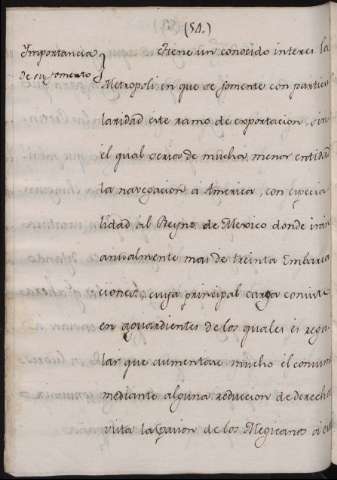 (51.)
Importancia
de su fomento
Tiene un conocido interes la
Metropoli en que se fomente con particu
laridad este ramo de exportacion, sin
el qual seria de mucha menor entidad
la navegacion a America, con especia
lidad al Reyno de Mexico donde
anualmente mas de treinta Embarca
ciones, cuya principal carga consiste
en aguardientes de los quales es regu
lar que aumentare mucho el consumo
mediante alguna reduccion de derechos
vista la pasion de los Megicanos a